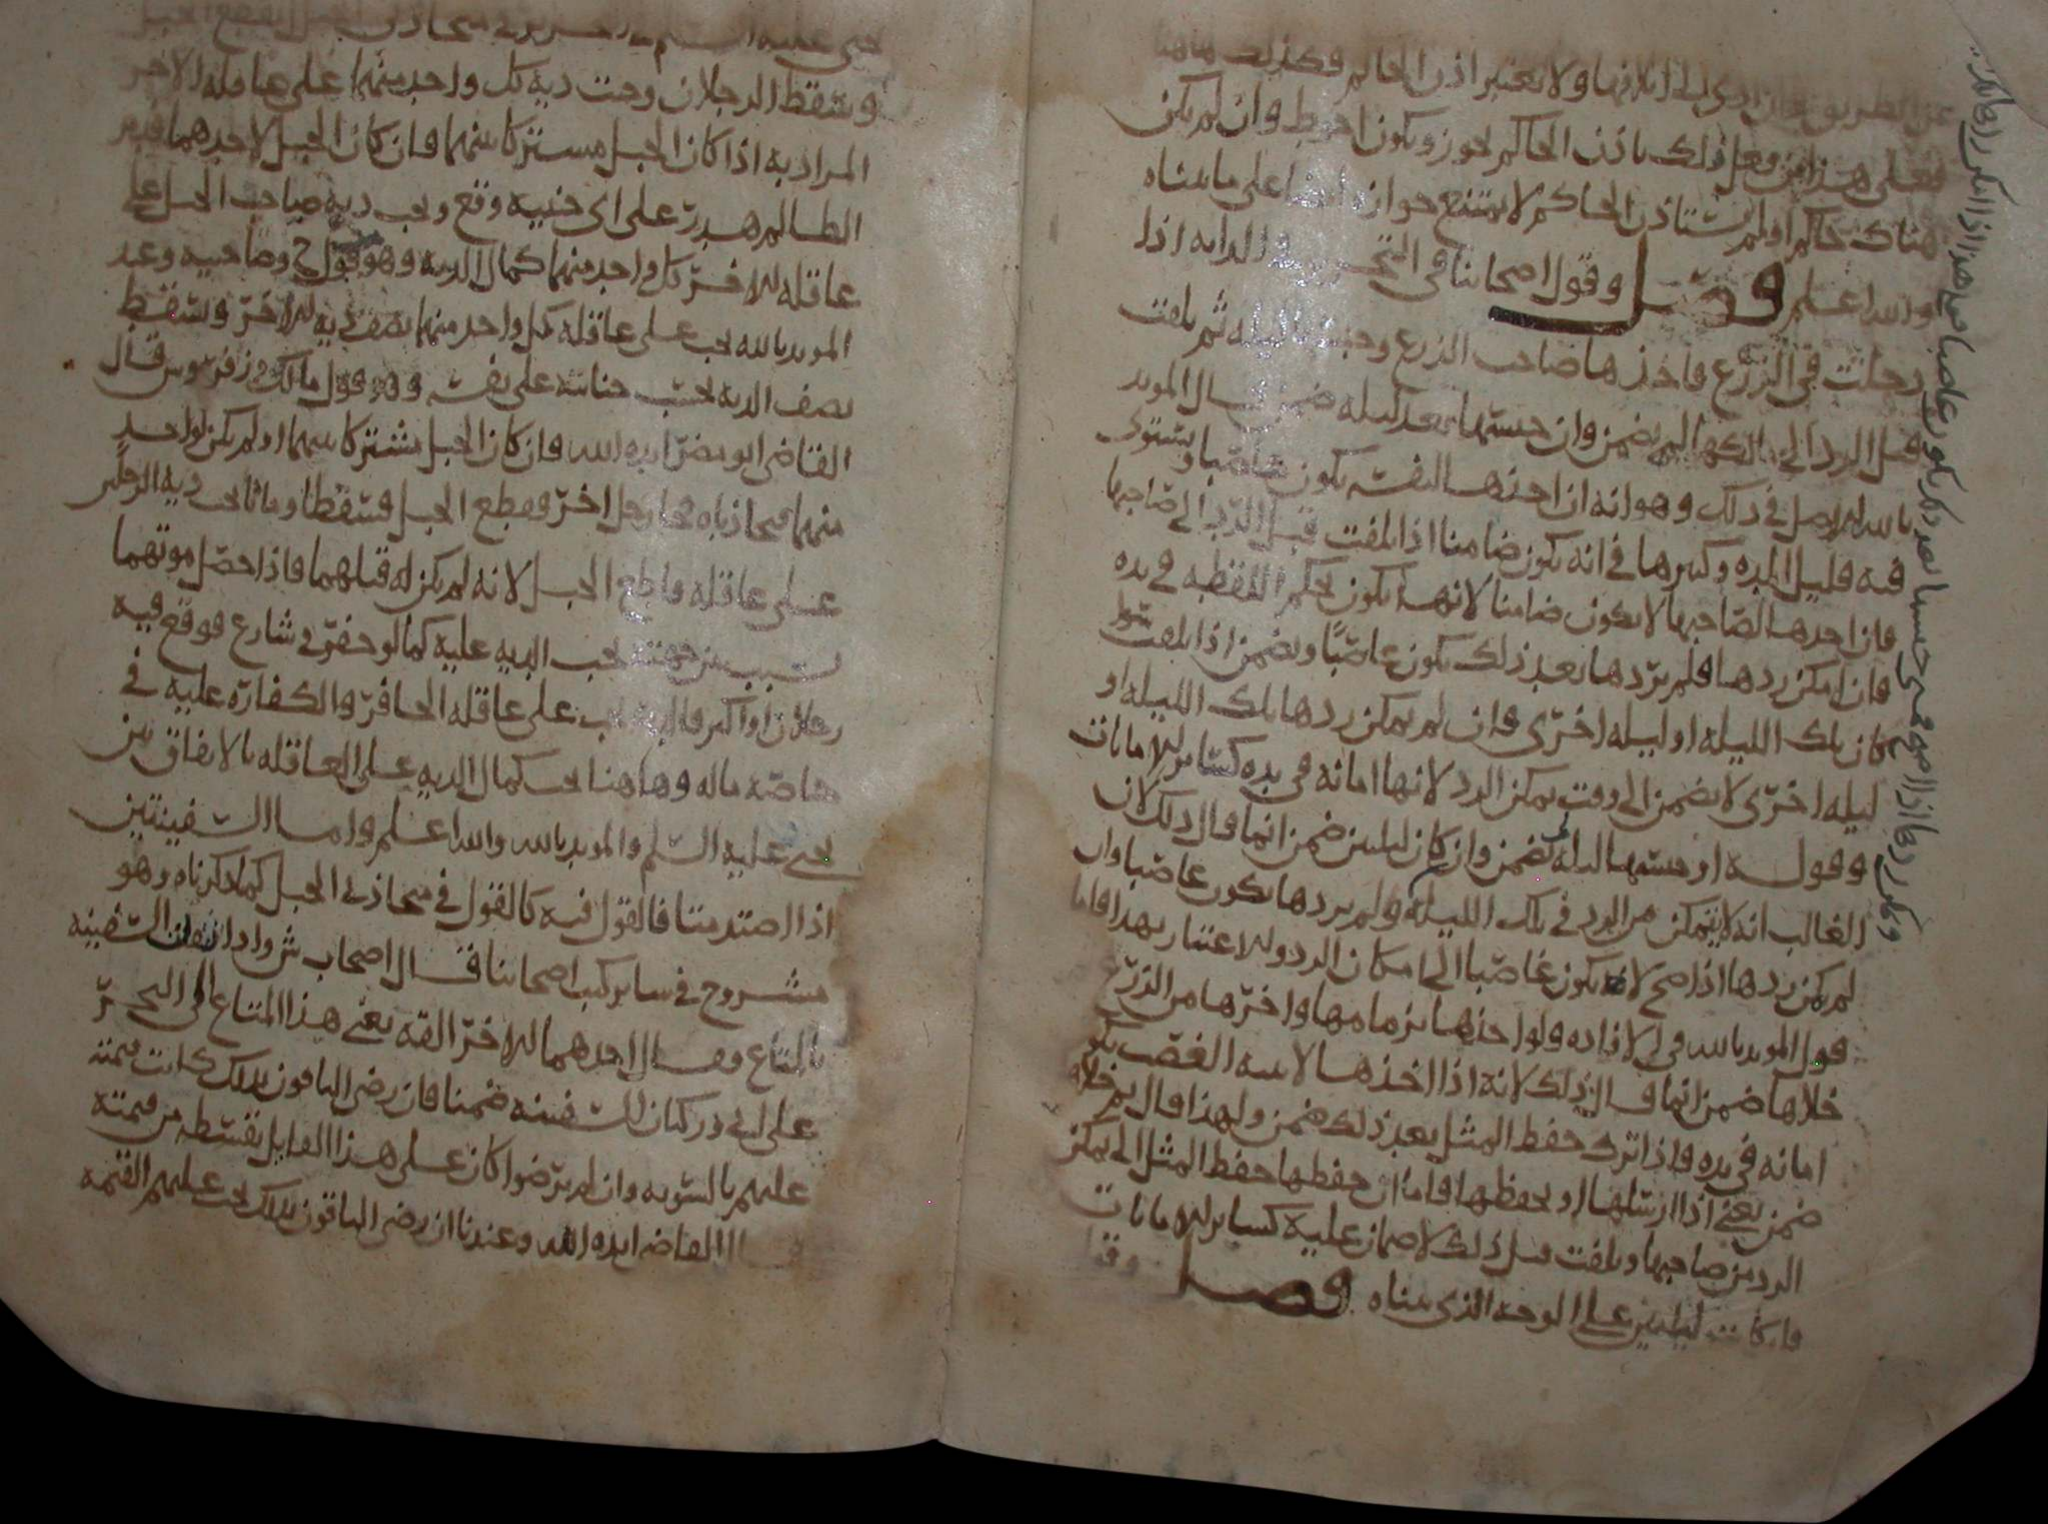 عن الطريق فان ادى الى اتلافها ولا يعتبر اذن الحاكم فكذلك هاهنا
فعلى هذا من فعل ذلك باذن الحاكم يجوز ويكون احوط وان لم يكن
هناك حاكم او لم يستاذن الحاكم لا يمتنع جوازه ايضا على ما بيناه
والله اعلم فصل وقول اصحابنا في الدابه اذا
دخلت في الزرع فاخذها صاحب الزرع وحبسها ليله ثم تلفت
قبل الرد الى مالكها لم يضمن وان حبسها بعد ليله ضمن قال المويد
بالله الاصل في ذلك وهو انه ان اخذها لنفسه يكون غاصبا ويستوى
فيه قليل المده وكثيرها في انه يكون ضامنا اذا تلفت قبل الرد الى صاحبها
فان اخذها لصاحبها لا يكون ضامنا لانها يكون بحكم اللقطه في يده
فان امكن ردها فلم يردها بعد ذلك يكون غاصبا ويضمن اذا تلفت سوا
كان تلك الليله او ليله اخرى فان لم يمكن ردها تلك الليله او
ليله اخرى لا يضمن الى وقت يمكن الرد لانها امانه في يده كسائر الامانات
وقوله او حبسها ليله لم يضمن وان كان ليلتين ضمن انما قال ذلك لان
الغالب انه لا يتمكن من الرد في تلك الليله ولم يردها يكون غاصبا وان
لم يمكن ردها اذا صح لا يكون غاصبا الى امكان الرد والاعتبار بهذا فاما
قول المويد بالله في الافاده ولو اخذها بزمامها واخرجها من الزرع
خلاها ضمن انما قال ذلك لانه اذا اخذها لا بنيه الغصب يكون
امانه في يده فاذا ترك حفظ المثل بعد ذلك ضمن ولهذا قال ثم خلاه
ضمن يعني اذا ارسلها او لم يحفظها فاما ان حفظها حفظ المثل الى يمكن
الرد من صاحبها وتلفت قبل ذلك لا ضمان عليه كسائر الامانات
فان كانت ليلتين على الوجه الذي بيناه فصل وقتا
وسقط الرجلان وجبت ديه كل واحد منهما على عاقله الاخر
المراد به اذا كان الحبل مشتركا بينهما فان كان الحبل لاحدهما فدم
الظالم هدر على اى جنبيه وقع ويجب ديه صاحب الحبل على
عاقله الاخر كل واحد منهما كمال الديه وهو قول ح وصاحبيه وعند
المويد بالله يجب على عاقله كل واحد منهما نصف ديه الاخر ويسقط
نصف الديه بحسب جنايته على نفسه وهو قول مالك وزفر وش قال
القاضى ابو مضر ايده الله فان كان الحبل مشتركا بينهما او لم يكن لواحد
منهما فتجاذباه فجا رجل اخر فقطع الحبل فسقطا وماتا يجب ديه الرجلين
على عاقله قاطع الحبل لانه لم يكن له قتلهما فاذا حصل موتهما
بسبب من جهته يجب الديه عليه كما لو حفر في شارع فوقع فيه
رجلان او اكثر فالديه تجب على عاقله الحافر والكفاره عليه في
خاصه ماله وهاهنا يجب كمال الديه على العاقله بالاتفاق بين
يحيى عليه السلم والمويد بالله والله اعلم واما السفينتين
اذا اصتدمتا فالقول فيه كالقول في تجاذبى الحبل كما ذكرناه وهو
مشروح في سائر كتب اصحابنا قال اصحاب ش واذا ثقلت السفينه
بالمتاع وقال احدهما للاخر القه يعنى هذا المتاع الى البحر
على انى وركبان السفينه ضمنا فان رضى الباقون بذلك كانت قيمته
عليهم بالسويه وان لم يرضوا كان على هذا القايل بقسطه من قيمته
قال القاضى ايده الله وعندنا ان رضى الباقون بذلك يجب عليهم القيمه